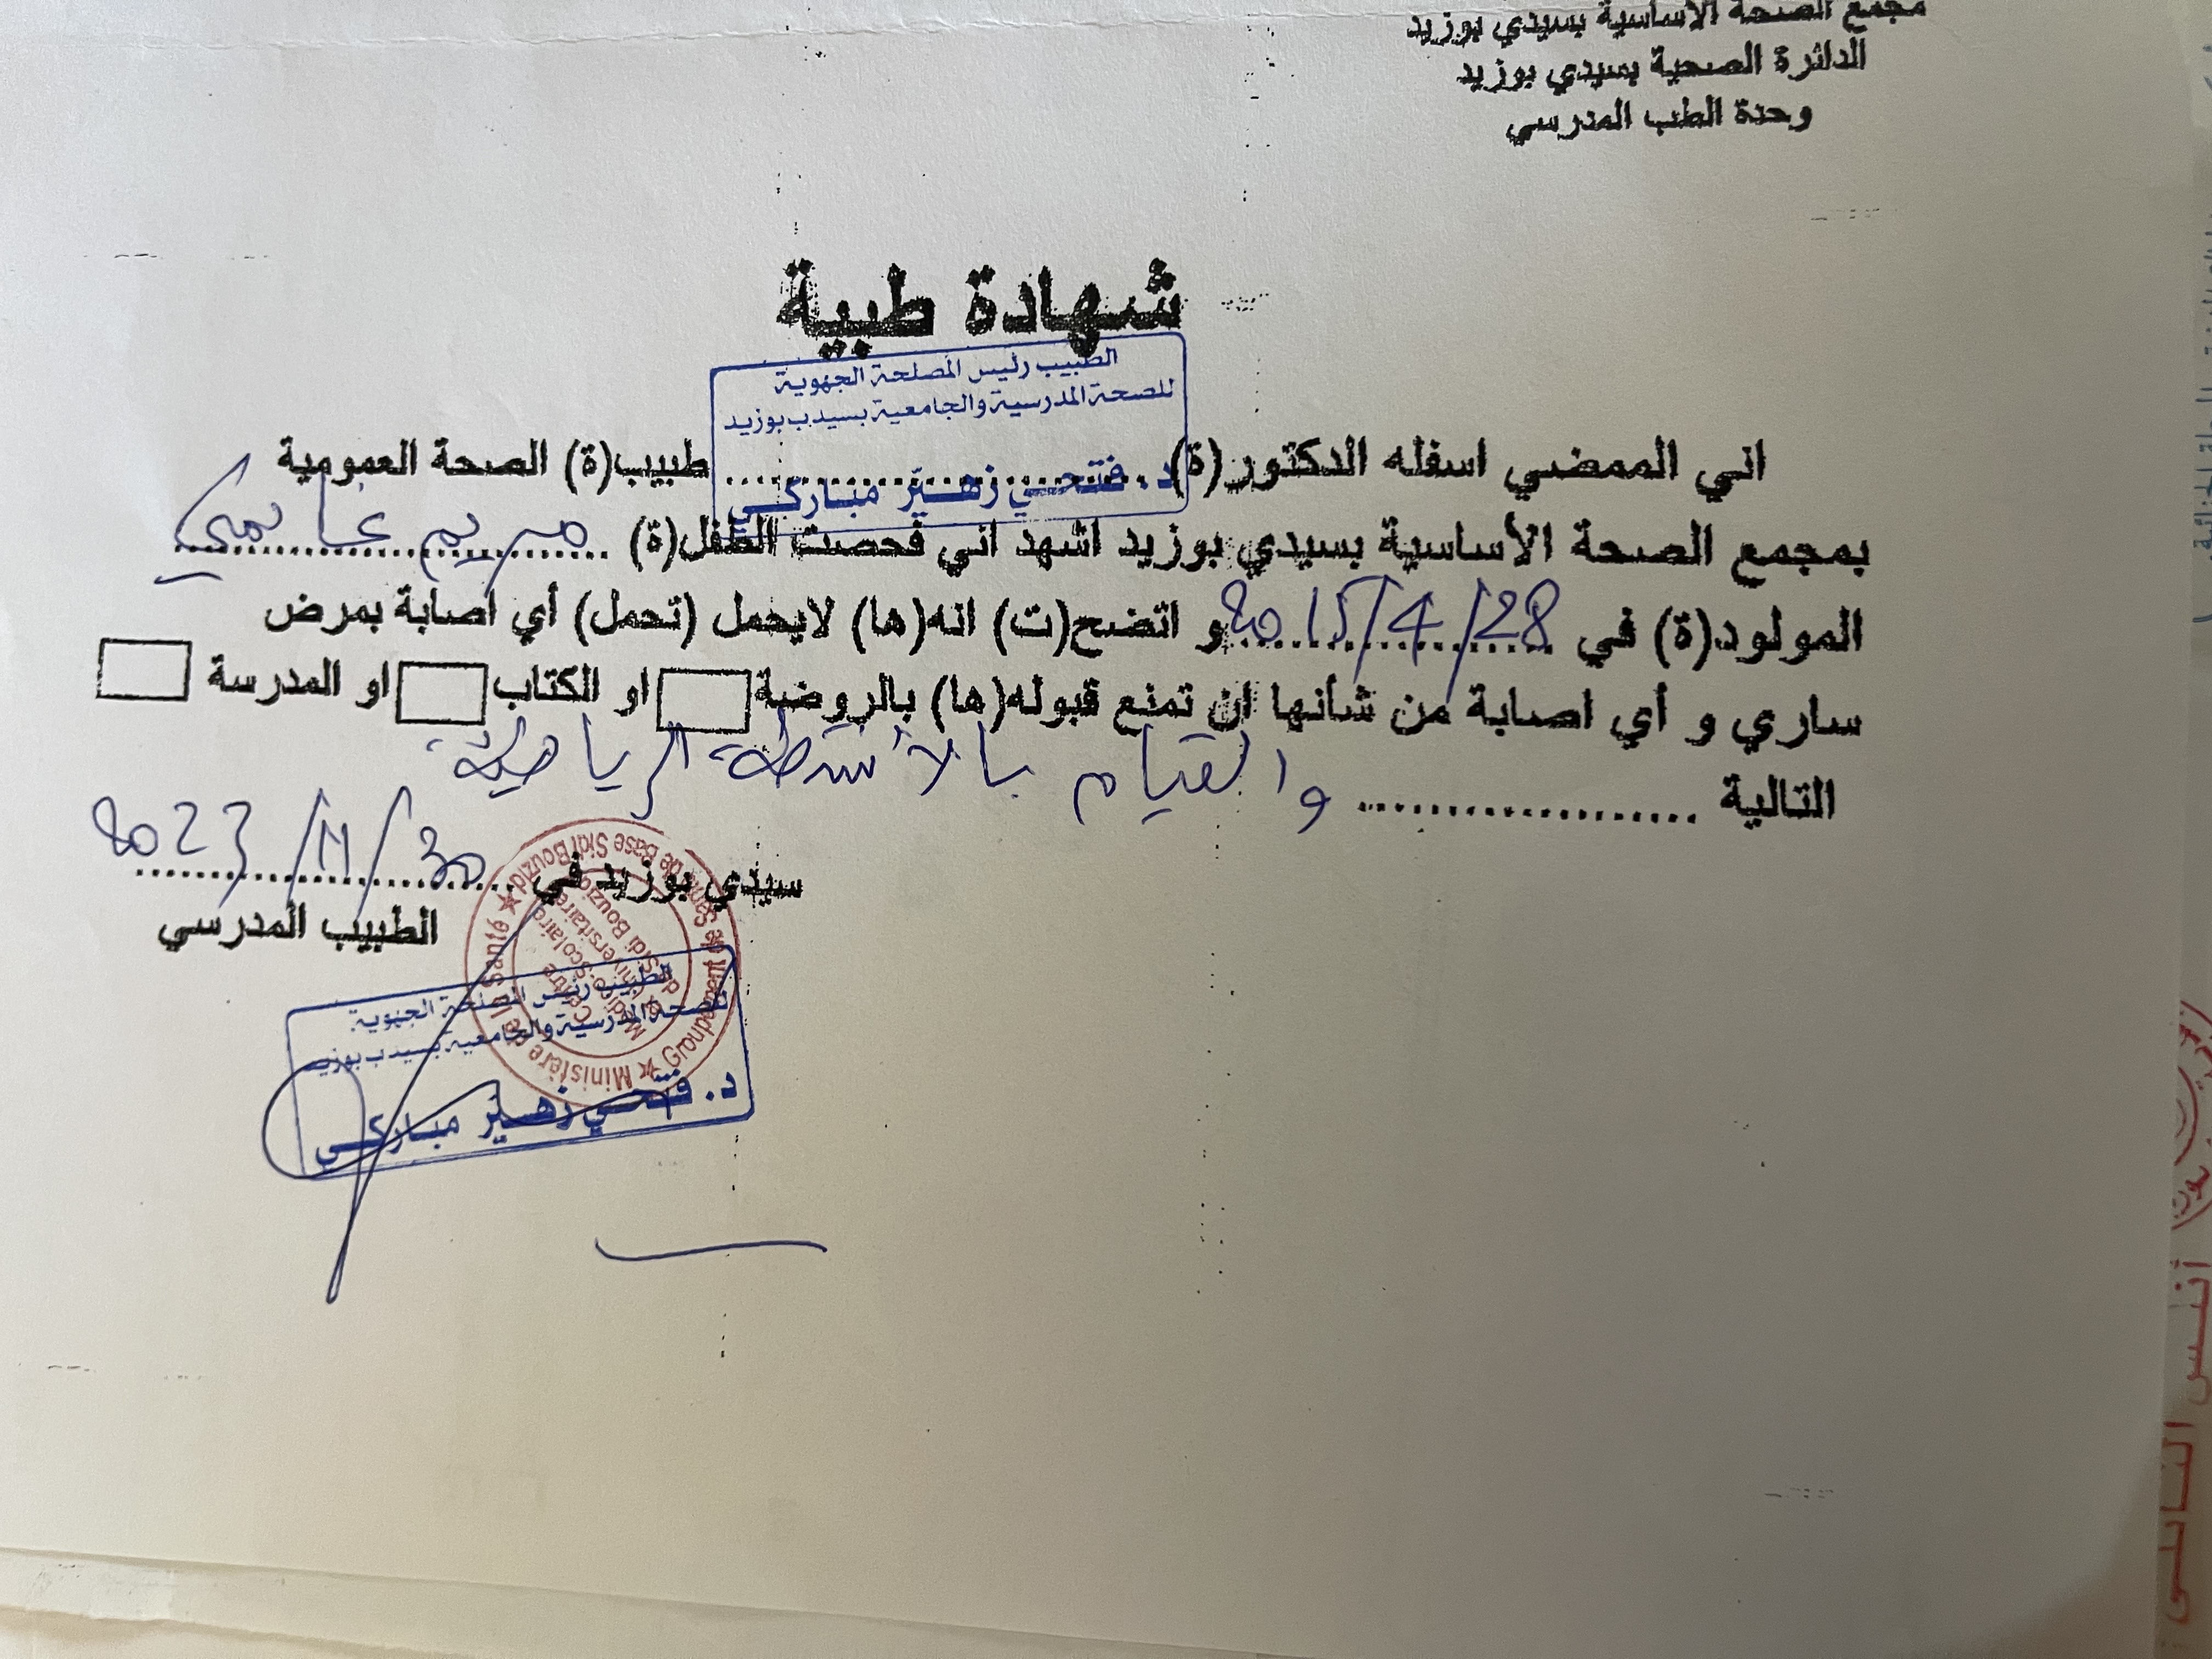 مجمع الصحة الأساسية بسيدي بوزيد
الدائرة الصحية بسيدي بوزيد
وحدة الطب المدرسي
شهادة طبية
الطبيب رئيس المصلحة الجهوية
للصحة المدرسية والجامعية بسيدي بوزيد
د. فتحي زهير مباركي
اني الممضي اسفله الدكتور(ة) .................... طبيب(ة) الصحة العمومية
بمجمع الصحة الأساسية بسيدي بوزيد اشهد اني فحصت الطفل(ة) مريم
المولود(ة) في 28/4/2015 و اتضح(ت) انه(ها) لايحمل (تحمل) أي اصابة بمرض
ساري و أي اصابة من شأنها ان تمنع قبوله(ها) بالروضة او الكتاب او المدرسة
التالية .................... والقيام بالأنشطة الرياضية
سيدي بوزيد في 30/11/2023
الطبيب المدرسي
Ministère de la Santé ★ Groupement de Santé de Base Sidi Bouzid ★
Centre
Médico-Scolaire
& Universitaire
de Sidi Bouzid
الطبيب رئيس المصلحة الجهوية
للصحة المدرسية والجامعية بسيدي بوزيد
د. فتحي زهير مباركي